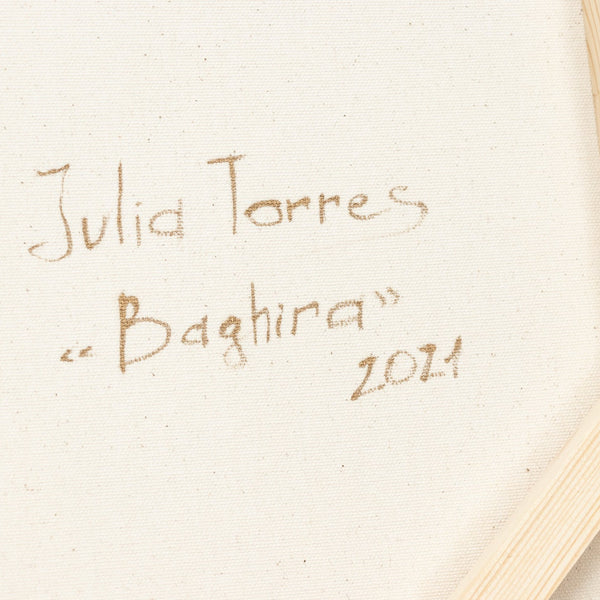 Julia Torres
“Baghira”
2021